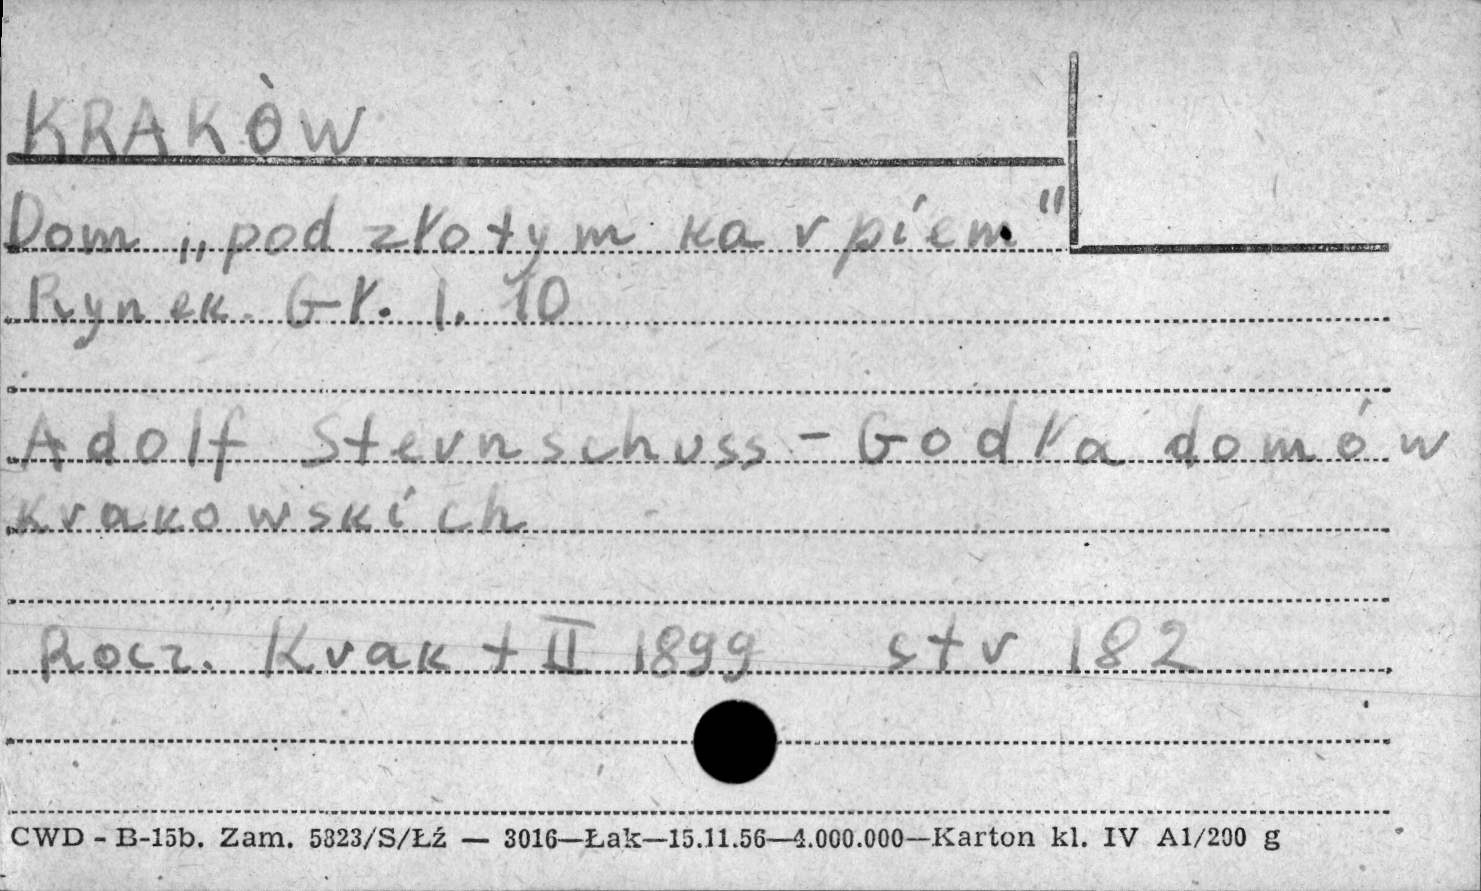 KRAKÒW
Dom „pod złotym karpiem"
Rynek Gł. l. 10
Adolf Sternschuss - Godła domów
krakowskich
Rocz. Krak t II 1899 str 182
CWD - B-15b. Zam. 5823/S/Łź — 3016—Łak—15.11.56—4.000.000—Karton kl. IV A1/200 g